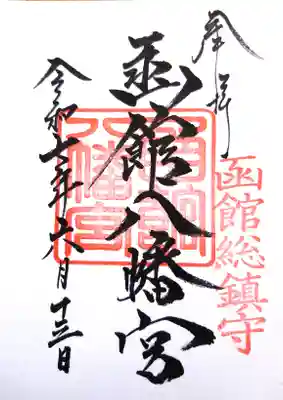 奉拝
函館総鎮守
函館八幡宮
函館八幡宮
令和七年六月十三日